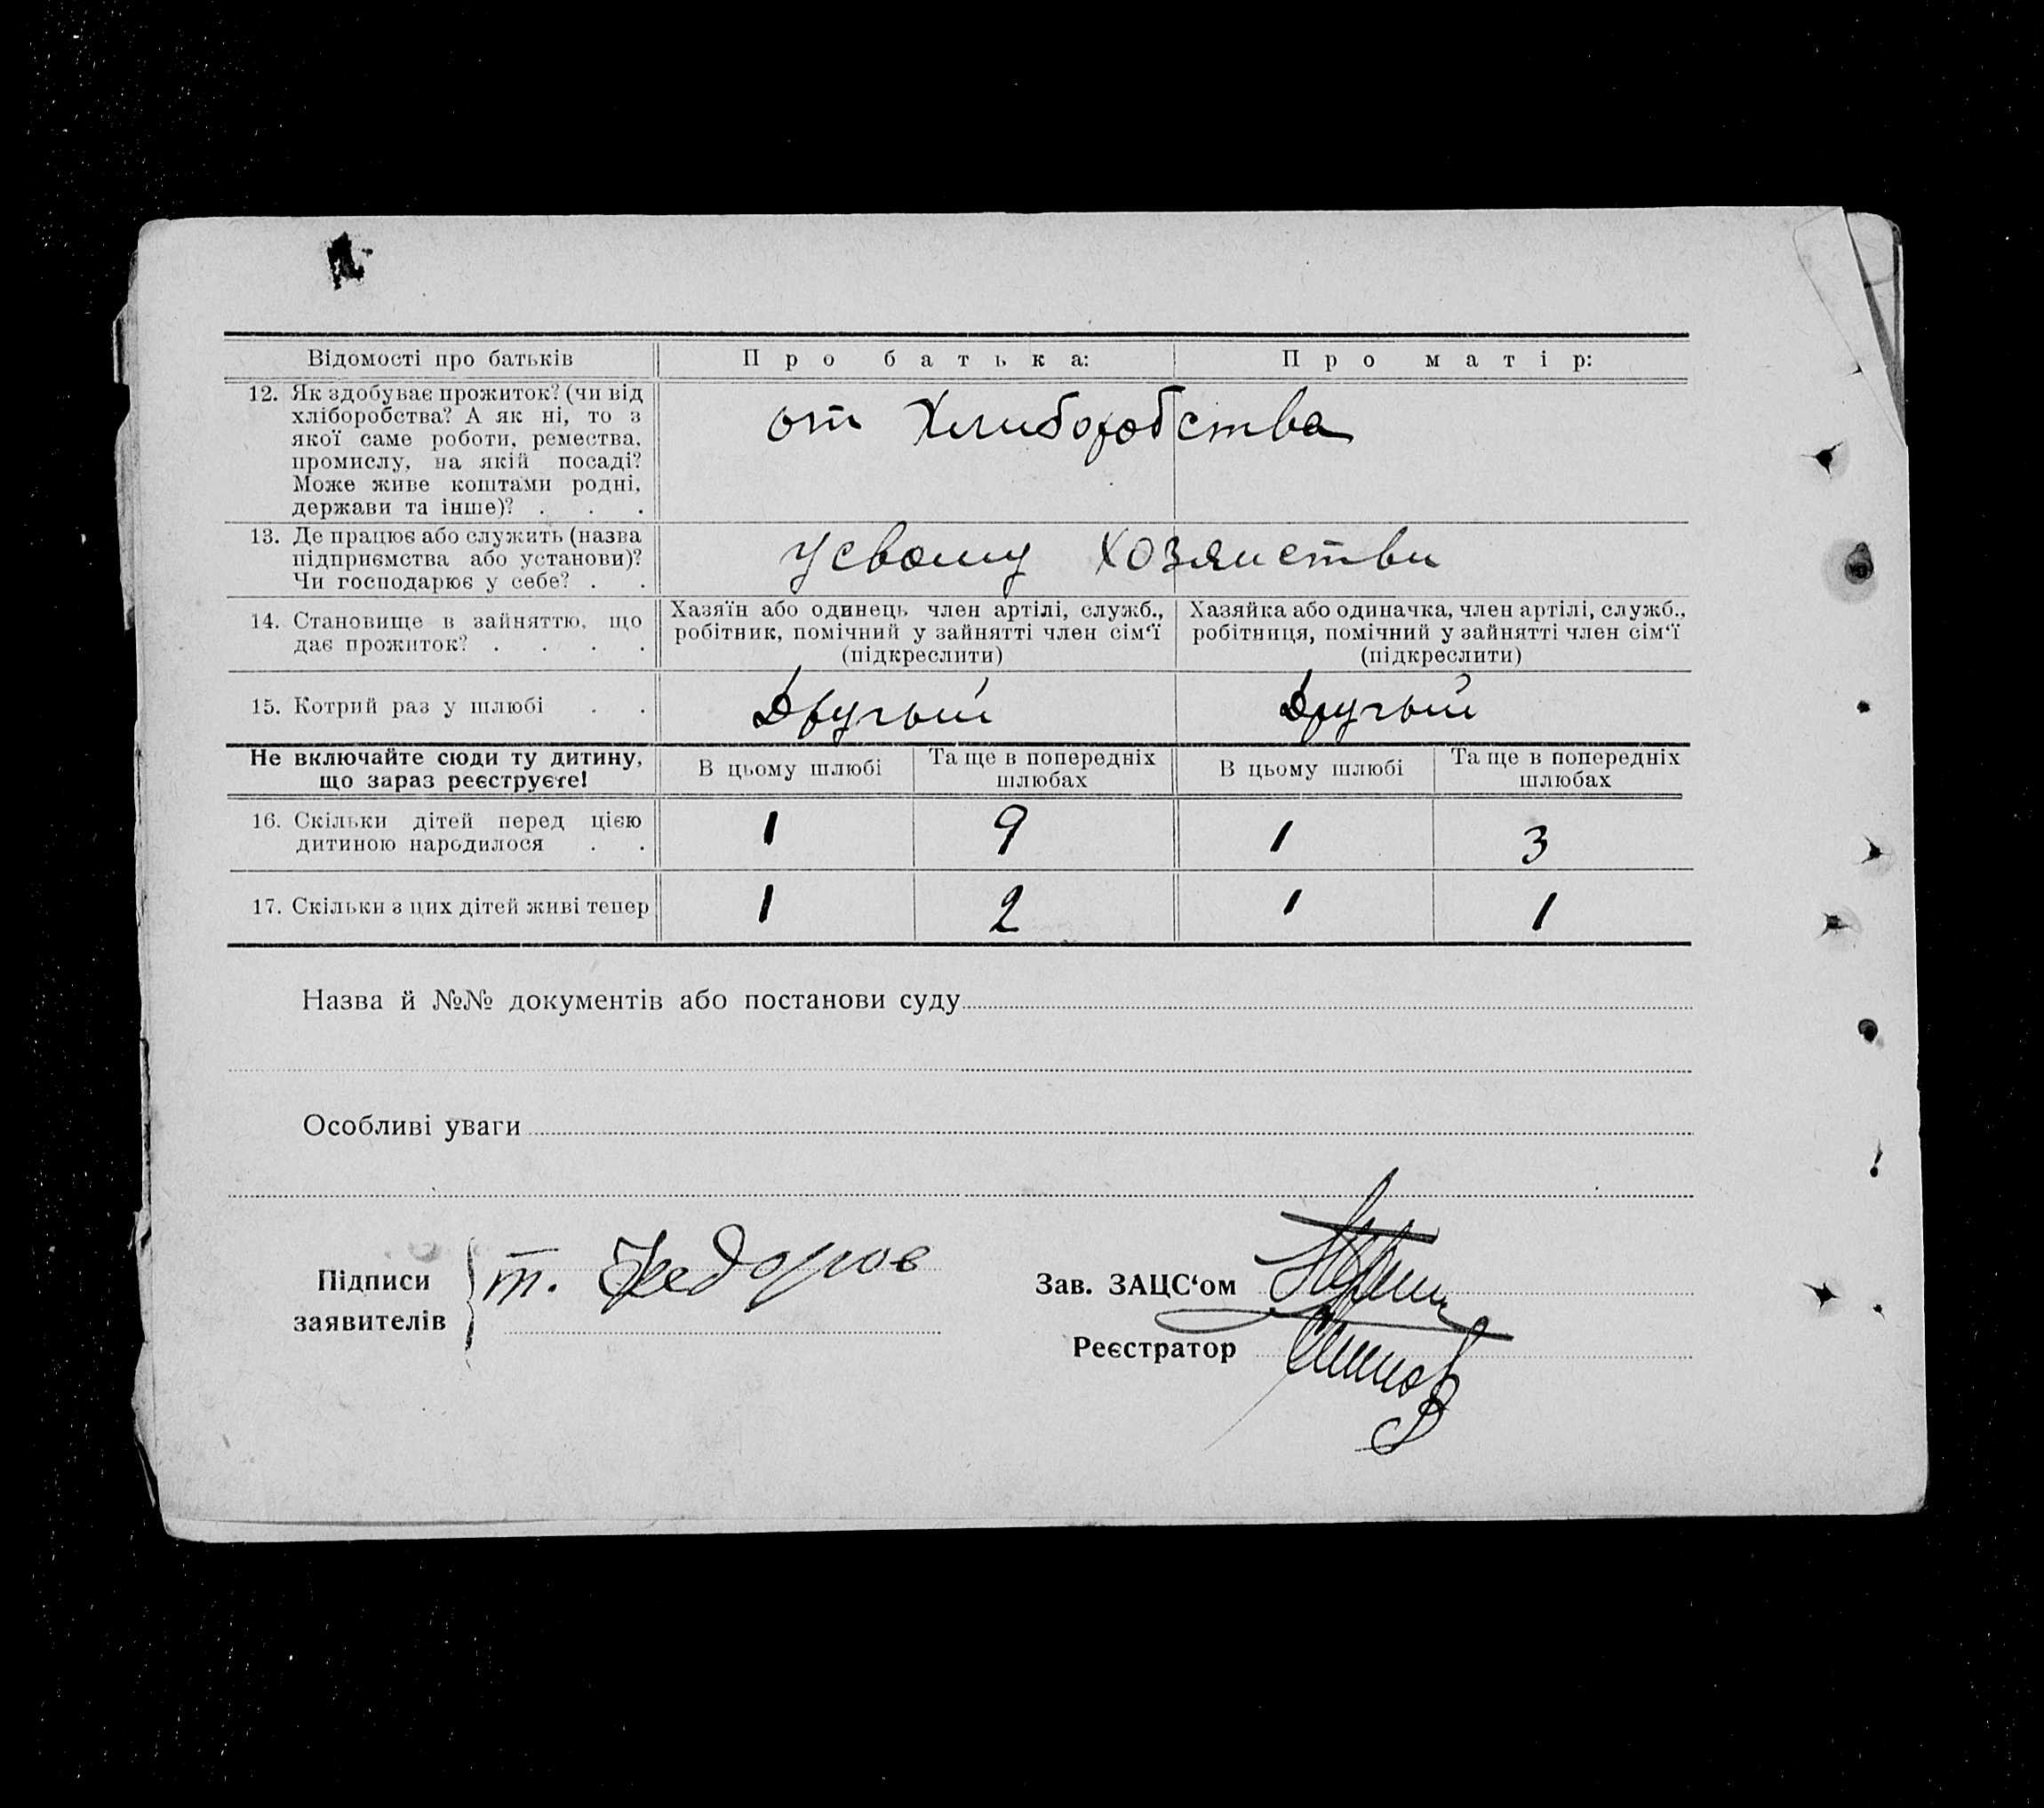 Відомості про батьків
Про батька:
Про матір:
12. Як здобуває прожиток? (чи від
хліборобства? А як ні, то з
якої саме роботи, ремества,
промислу, на якій посаді?
Може живе коштами родні,
держави та інше)? . . .
от Хлиборобства
13. Де працює або служить (назва
підприємства або установи)?
Чи господарює у себе? . .
у свому хозяистви
14. Становище в зайняттю, що
дає прожиток? . . . .
Хазяїн або одинець член артілі, служб.,
робітник, помічний у зайнятті член сім'ї
(підкреслити)
Хазяйка або одиначка, член артілі, служб.,
робітниця, помічний у зайнятті член сім'ї
(підкреслити)
15. Котрий раз у шлюбі . .
Другый
Другый
Не включайте сюди ту дитину,
що зараз реєструєте!
В цьому шлюбі
Та ще в попередніх
шлюбах
В цьому шлюбі
Та ще в попередніх
шлюбах
16. Скільки дітей перед цією
дитиною народилося . .
1 9 1 3
17. Скільки з цих дітей живі тепер
1 2 1 1
Назва й №№ документів або постанови суду
Особливі уваги
Підписи
заявителів
т. Федоров
Зав. ЗАЦС'ом
Реєстратор